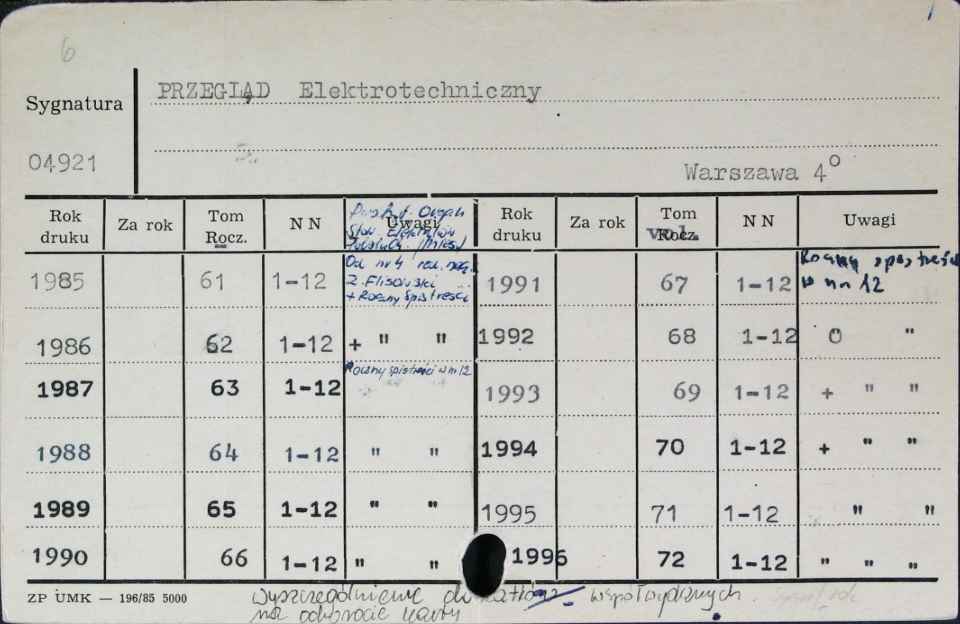 6
PRZEGLĄD Elektrotechniczny
Sygnatura
04921
Warszawa 4°
Rok druku Za rok Tom Rocz. NN Uwagi Rok druku Za rok Tom Rocz. vol. NN Uwagi
1985 61 1-12 Od nr 4 1991 67 1-12 Roczny w nr 12
+ Roczny
1986 62 1-12 + " " 1992 68 1-12 0 "
1987 63 1-12 Roczny w nr 12 1993 69 1-12 + " "
1988 64 1-12 " " 1994 70 1-12 + " "
1989 65 1-12 " " 1995 71 1-12 " "
1990 66 1-12 " " 1996 72 1-12 " " "
ZP UMK — 196/85 5000
Wyszczególnienie
na odwrocie karty